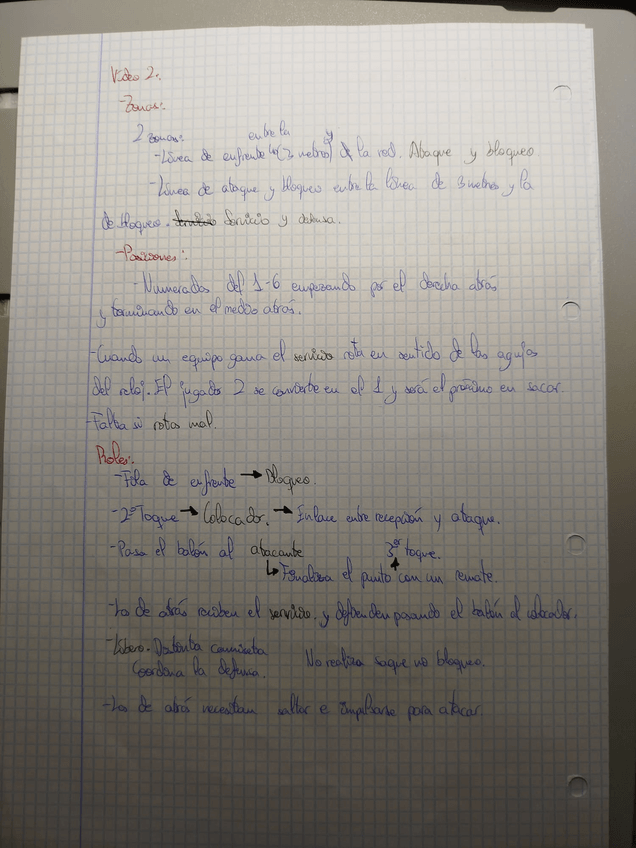 Video 2.
-Zonas:
2 zonas:
-Línea de enfrente (3 metros) entre la y de la red. Ataque y bloqueo
-Línea de ataque y bloqueo entre la línea de 3 metros y la
de bloqueo. Servicio y defensa.
-Posiciones:
-Numerados del 1-6 empezando por el derecha atrás
y terminando en el medio atrás.
-Cuando un equipo gana el servicio rota en sentido de las agujas
del reloj. El jugador 2 se convierte en el 1 y será el próximo en sacar.
-Falta si rotas mal.
Roles:
-Fila de enfrente → Bloqueo.
-2º Toque → Colocador. → Enlace entre recepción y ataque.
-Pasa el balón al atacante 3er toque.
↳ Finaliza el punto con un remate.
-Los de atrás reciben el servicio y defienden pasando el balón al colocador.
-Líbero. Distinta camiseta No realiza saque no bloqueo.
Coordina la defensa.
-Los de atrás necesitan saltar e impulsarse para atacar.